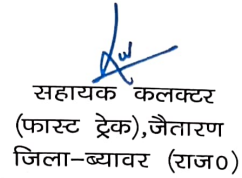 सहायक कलक्टर
(फास्ट ट्रेक),जैतारण
जिला-ब्यावर (राज०)